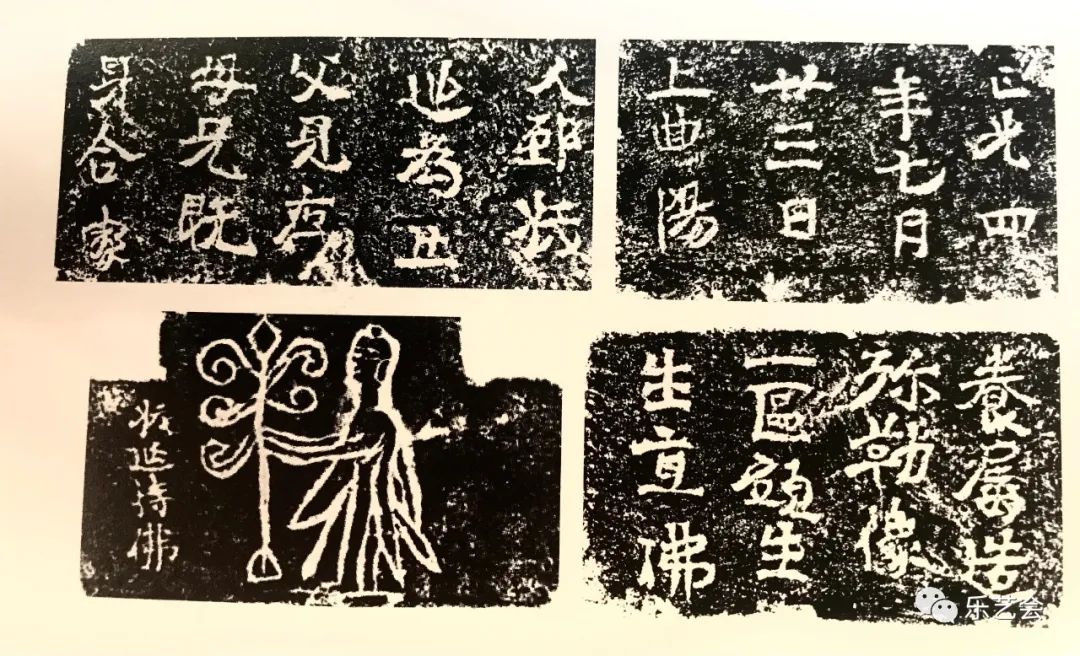 正光四
年七月
廿三日
上曲陽
人邸
延為亡
父見存
母兄既
身合家
眷屬造
弥勒像
一區願生
生直佛
延侍佛
乐艺会